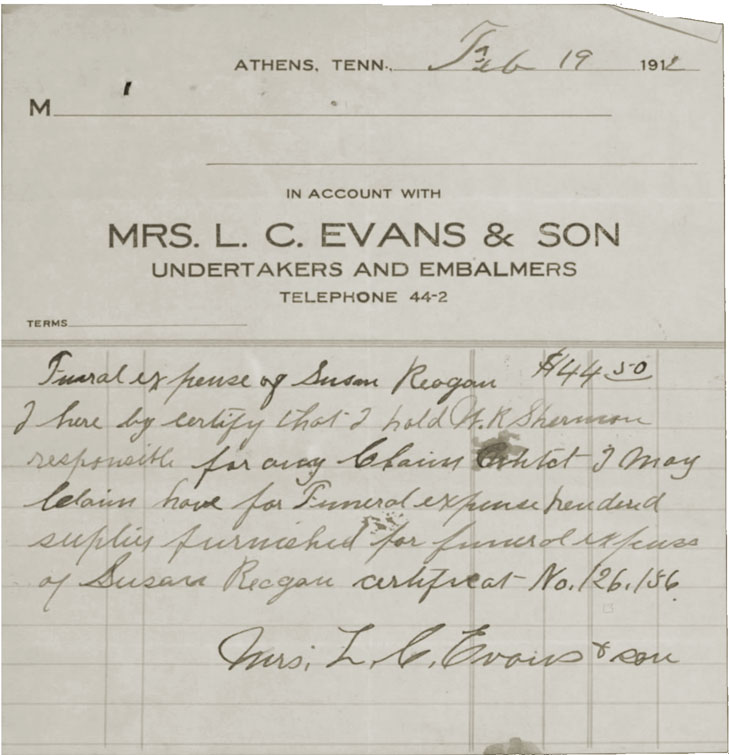 ATHENS, TENN., Feb 19 1912
M
IN ACCOUNT WITH
MRS. L. C. EVANS & SON
UNDERTAKERS AND EMBALMERS
TELEPHONE 44-2
TERMS
Funral expense of Susan Reagan $44.50
I here by certify that I hold W. R Sherman
responsible for any Claim I May
Claim have for Funeral expense rendered
suplies furnished for funeral expense
of Susan Reagan certificat No. 126,156
Mrs. L. C. Evans & son